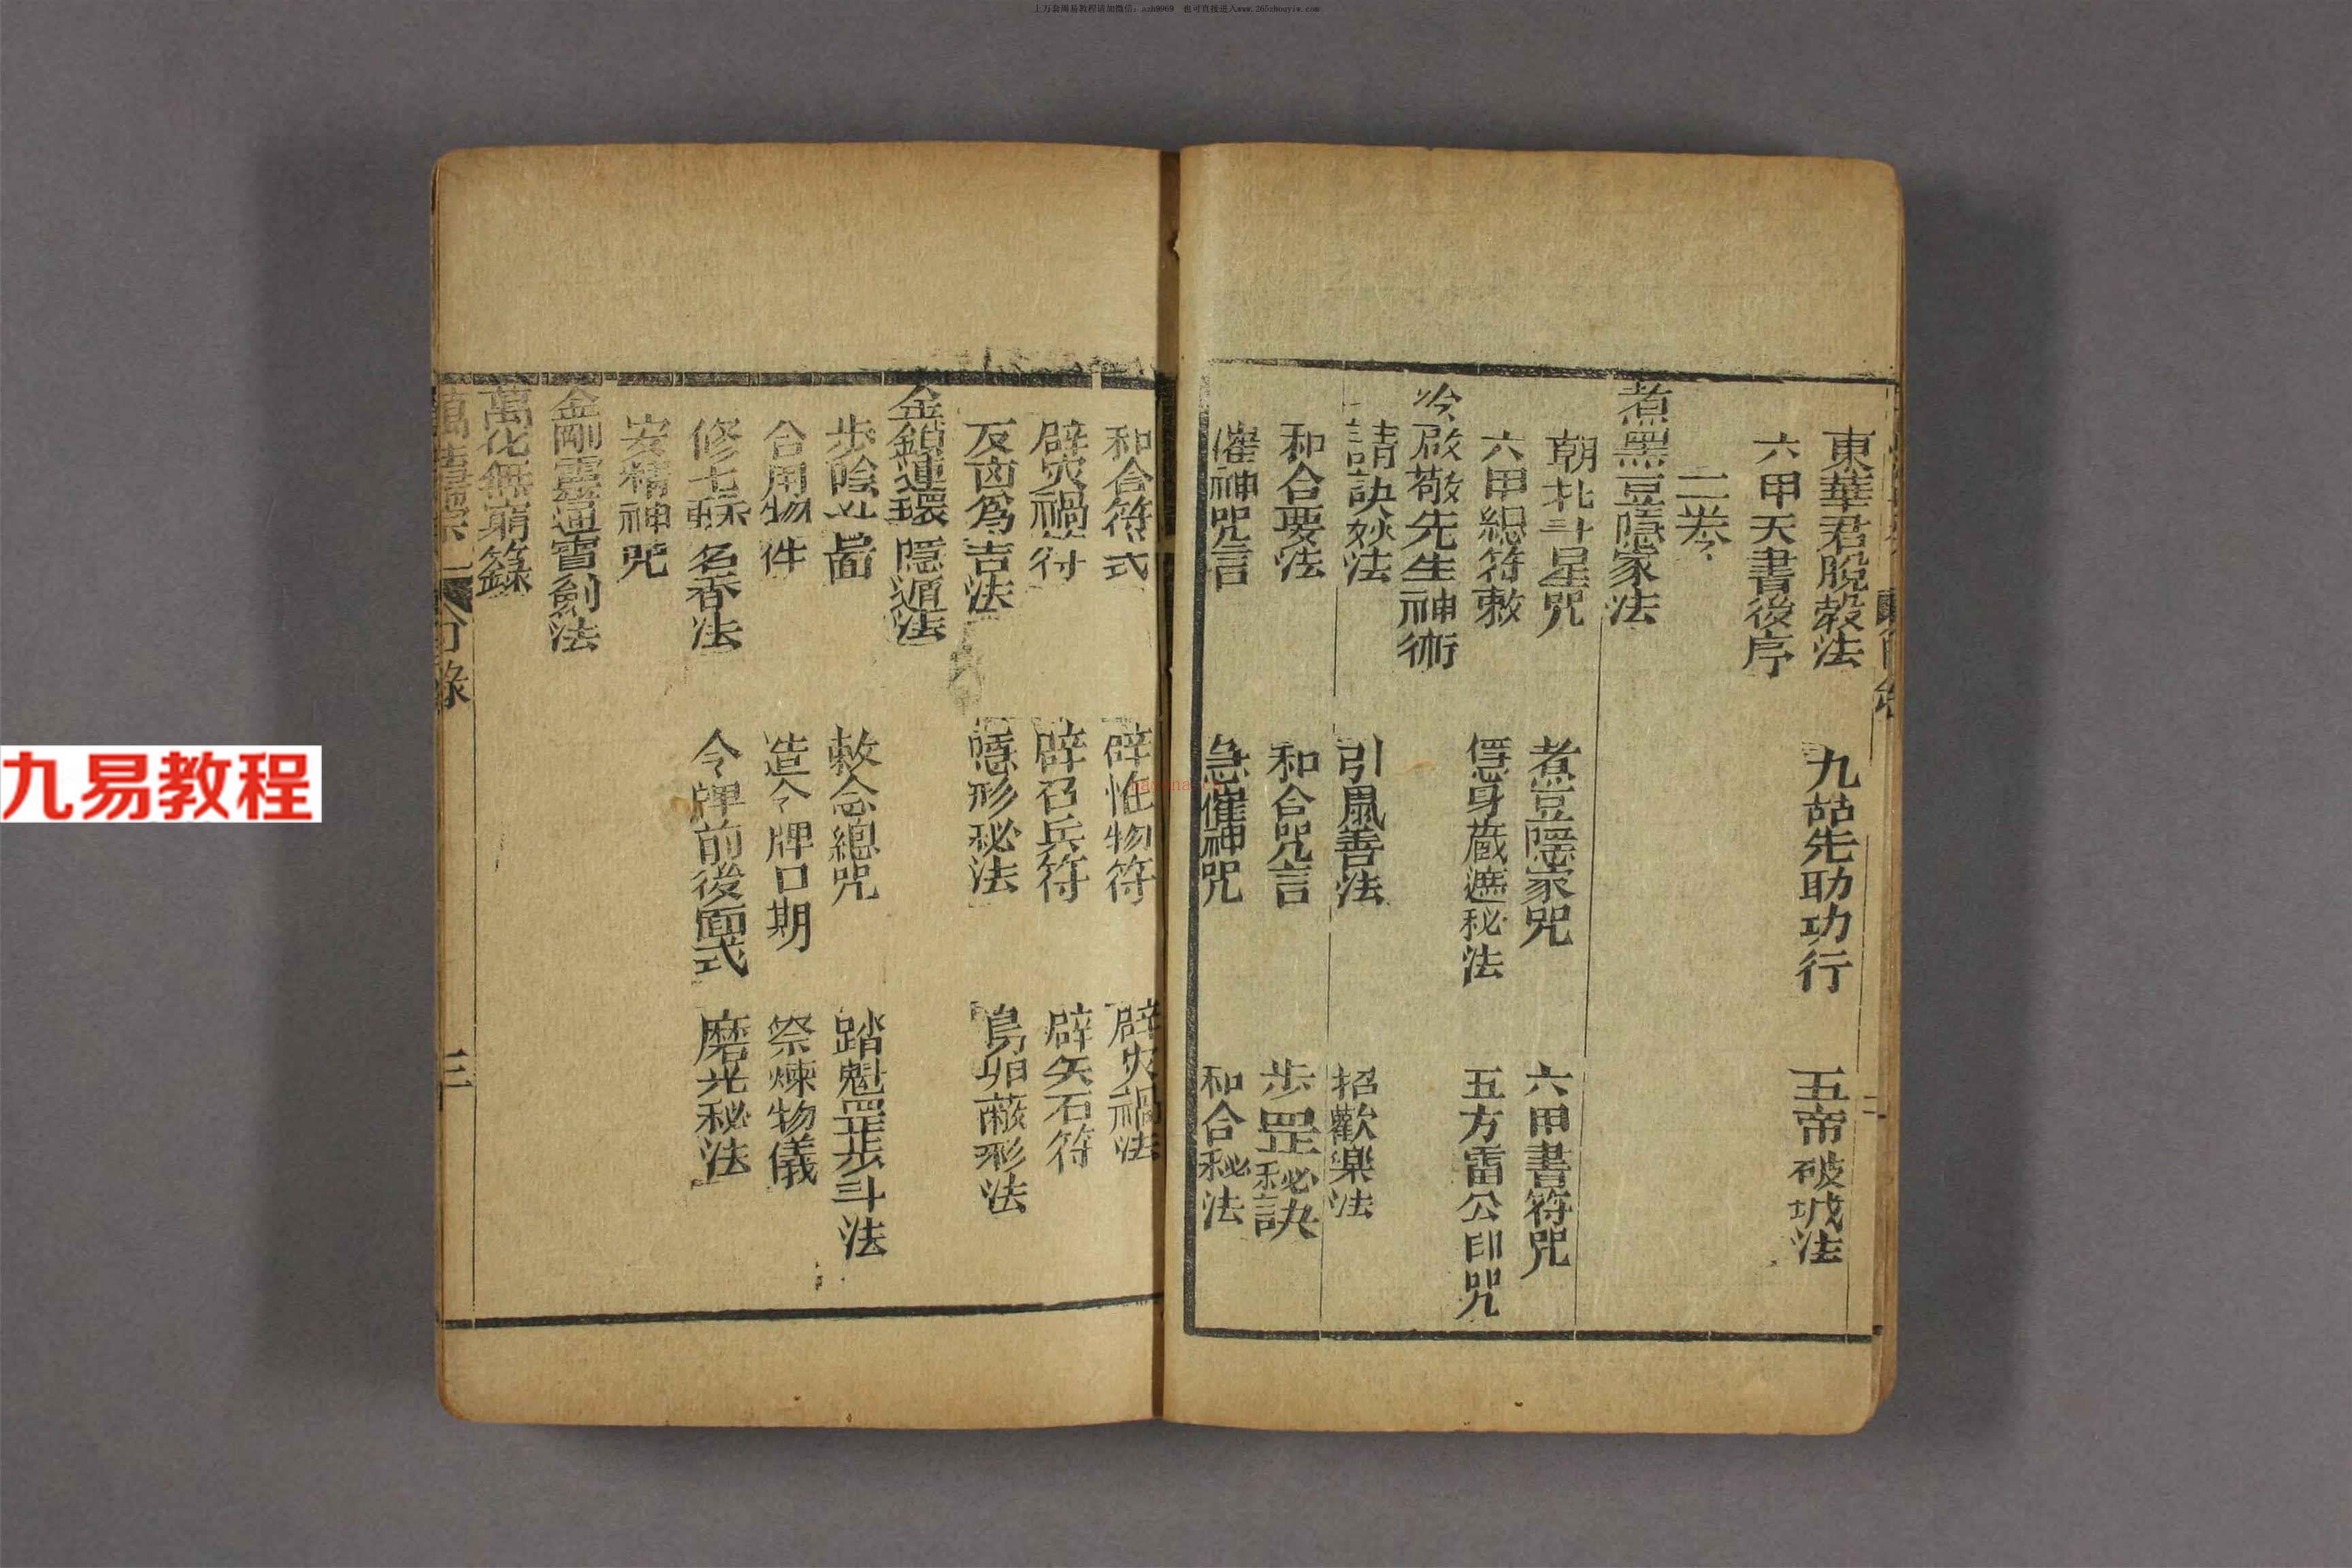 上万套周易教程请加微信：azh9969　也可直接进入www.265zhouyiw.com
九易教程
東華君脫殼法　九姑先助功行　五帝破城法
六甲天書後序
二卷
煮黑豆隱家法
朝北斗星咒　煮豆隱家咒　六甲書符咒
六甲總符敕　隱身藏遮秘法　五方雷公印咒
冷啟敬先生神術
請訣妙法　引風善法　招歡樂法
和合要法　和合咒言　步罡秘訣
催神咒言　急催神咒　和合秘法
二
和合符式　辟怪物符　辟災禍法
辟災禍符　辟召兵符　辟矢石符
反凶為吉法　隱形秘法　鳥卵蔽形法
金鎖連環隱遁法
步陰斗圖　敕念總咒　踏魁罡步斗法
合用物件　造令牌口期　祭煉物儀
修七蘇名香法　令牌前後面式　磨光秘法
安精神咒
金剛靈通寶劍法
萬化無窮錄
萬書　目錄　三